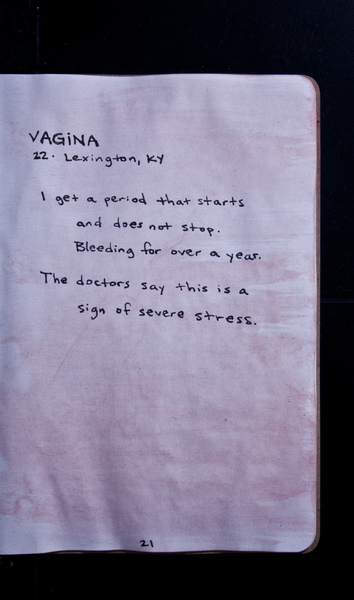 VAGiNA
22. Lexington, KY
I get a period that starts
and does not stop.
Bleeding for over a year.
The doctors say this is a
sign of severe stress.
21